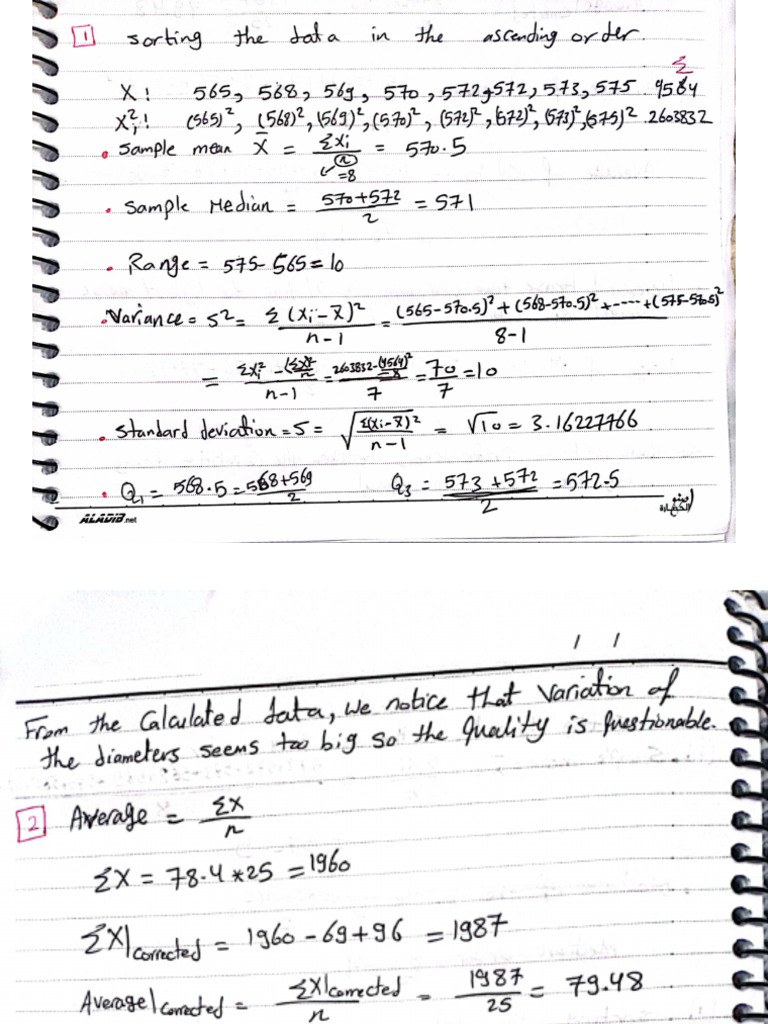 1 Sorting the data in the ascending order.
Σ
X: 565, 568, 569, 570, 572, 572, 573, 575 4564
Xi²: (565)², (568)², (569)², (570)², (572)², (572)², (573)², (575)² 2603832
• Sample mean X̄ = ΣXi/n = 570.5
=8
• Sample Median = (570+572)/2 = 571
• Range = 575-565=10
• Variance = S² = Σ(Xi-X̄)²/(n-1) = ((565-570.5)²+(568-570.5)²+-----+(575-570.5)²)/(8-1)
= (ΣXi² - (ΣX)²/n)/(n-1) = (2603832-(4564)²/8)/7 = 70/7 = 10
• Standard deviation = S = √(Σ(Xi-X̄)²/(n-1)) = √10 = 3.16227766
• Q₁ = 568.5 = (568+569)/2 Q₃ = (573+572)/2 = 572.5
ALADIB.net
/ /
From the Calculated data, we notice that Variation of
the diameters seems too big so the quality is questionable.
2 Average = ΣX/n
ΣX = 78.4*25 = 1960
ΣX|corrected = 1960-69+96 = 1987
Average|corrected = ΣX|corrected/n = 1987/25 = 79.48